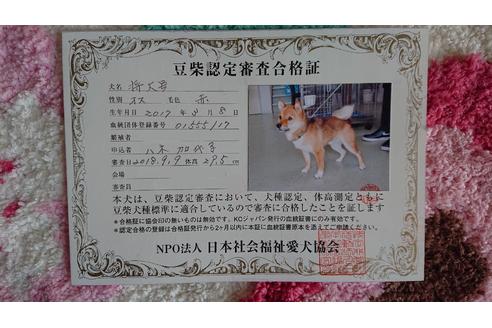 豆柴認定審査合格証
犬名 将大号
性別 オス 毛色 赤
生年月日 2017年 月 8日
血統団体登録番号 01555/17
繁殖者
申込者 八木 加代子
審査日 2018.9.9 体高 29.5 cm
会場
審査員
本犬は、豆柴認定審査において、犬種認定、体高測定ともに
豆柴犬種標準に適合しているので審査に合格したことを証します
※合格証に協会印の無いものは無効です。KCジャパン発行の血統証書にのみ有効です。
※認定合格の登録は合格証発行から2ヶ月以内に本証に血統証書原本を添えてご申請ください。
NPO法人 日本社会福祉愛犬協会